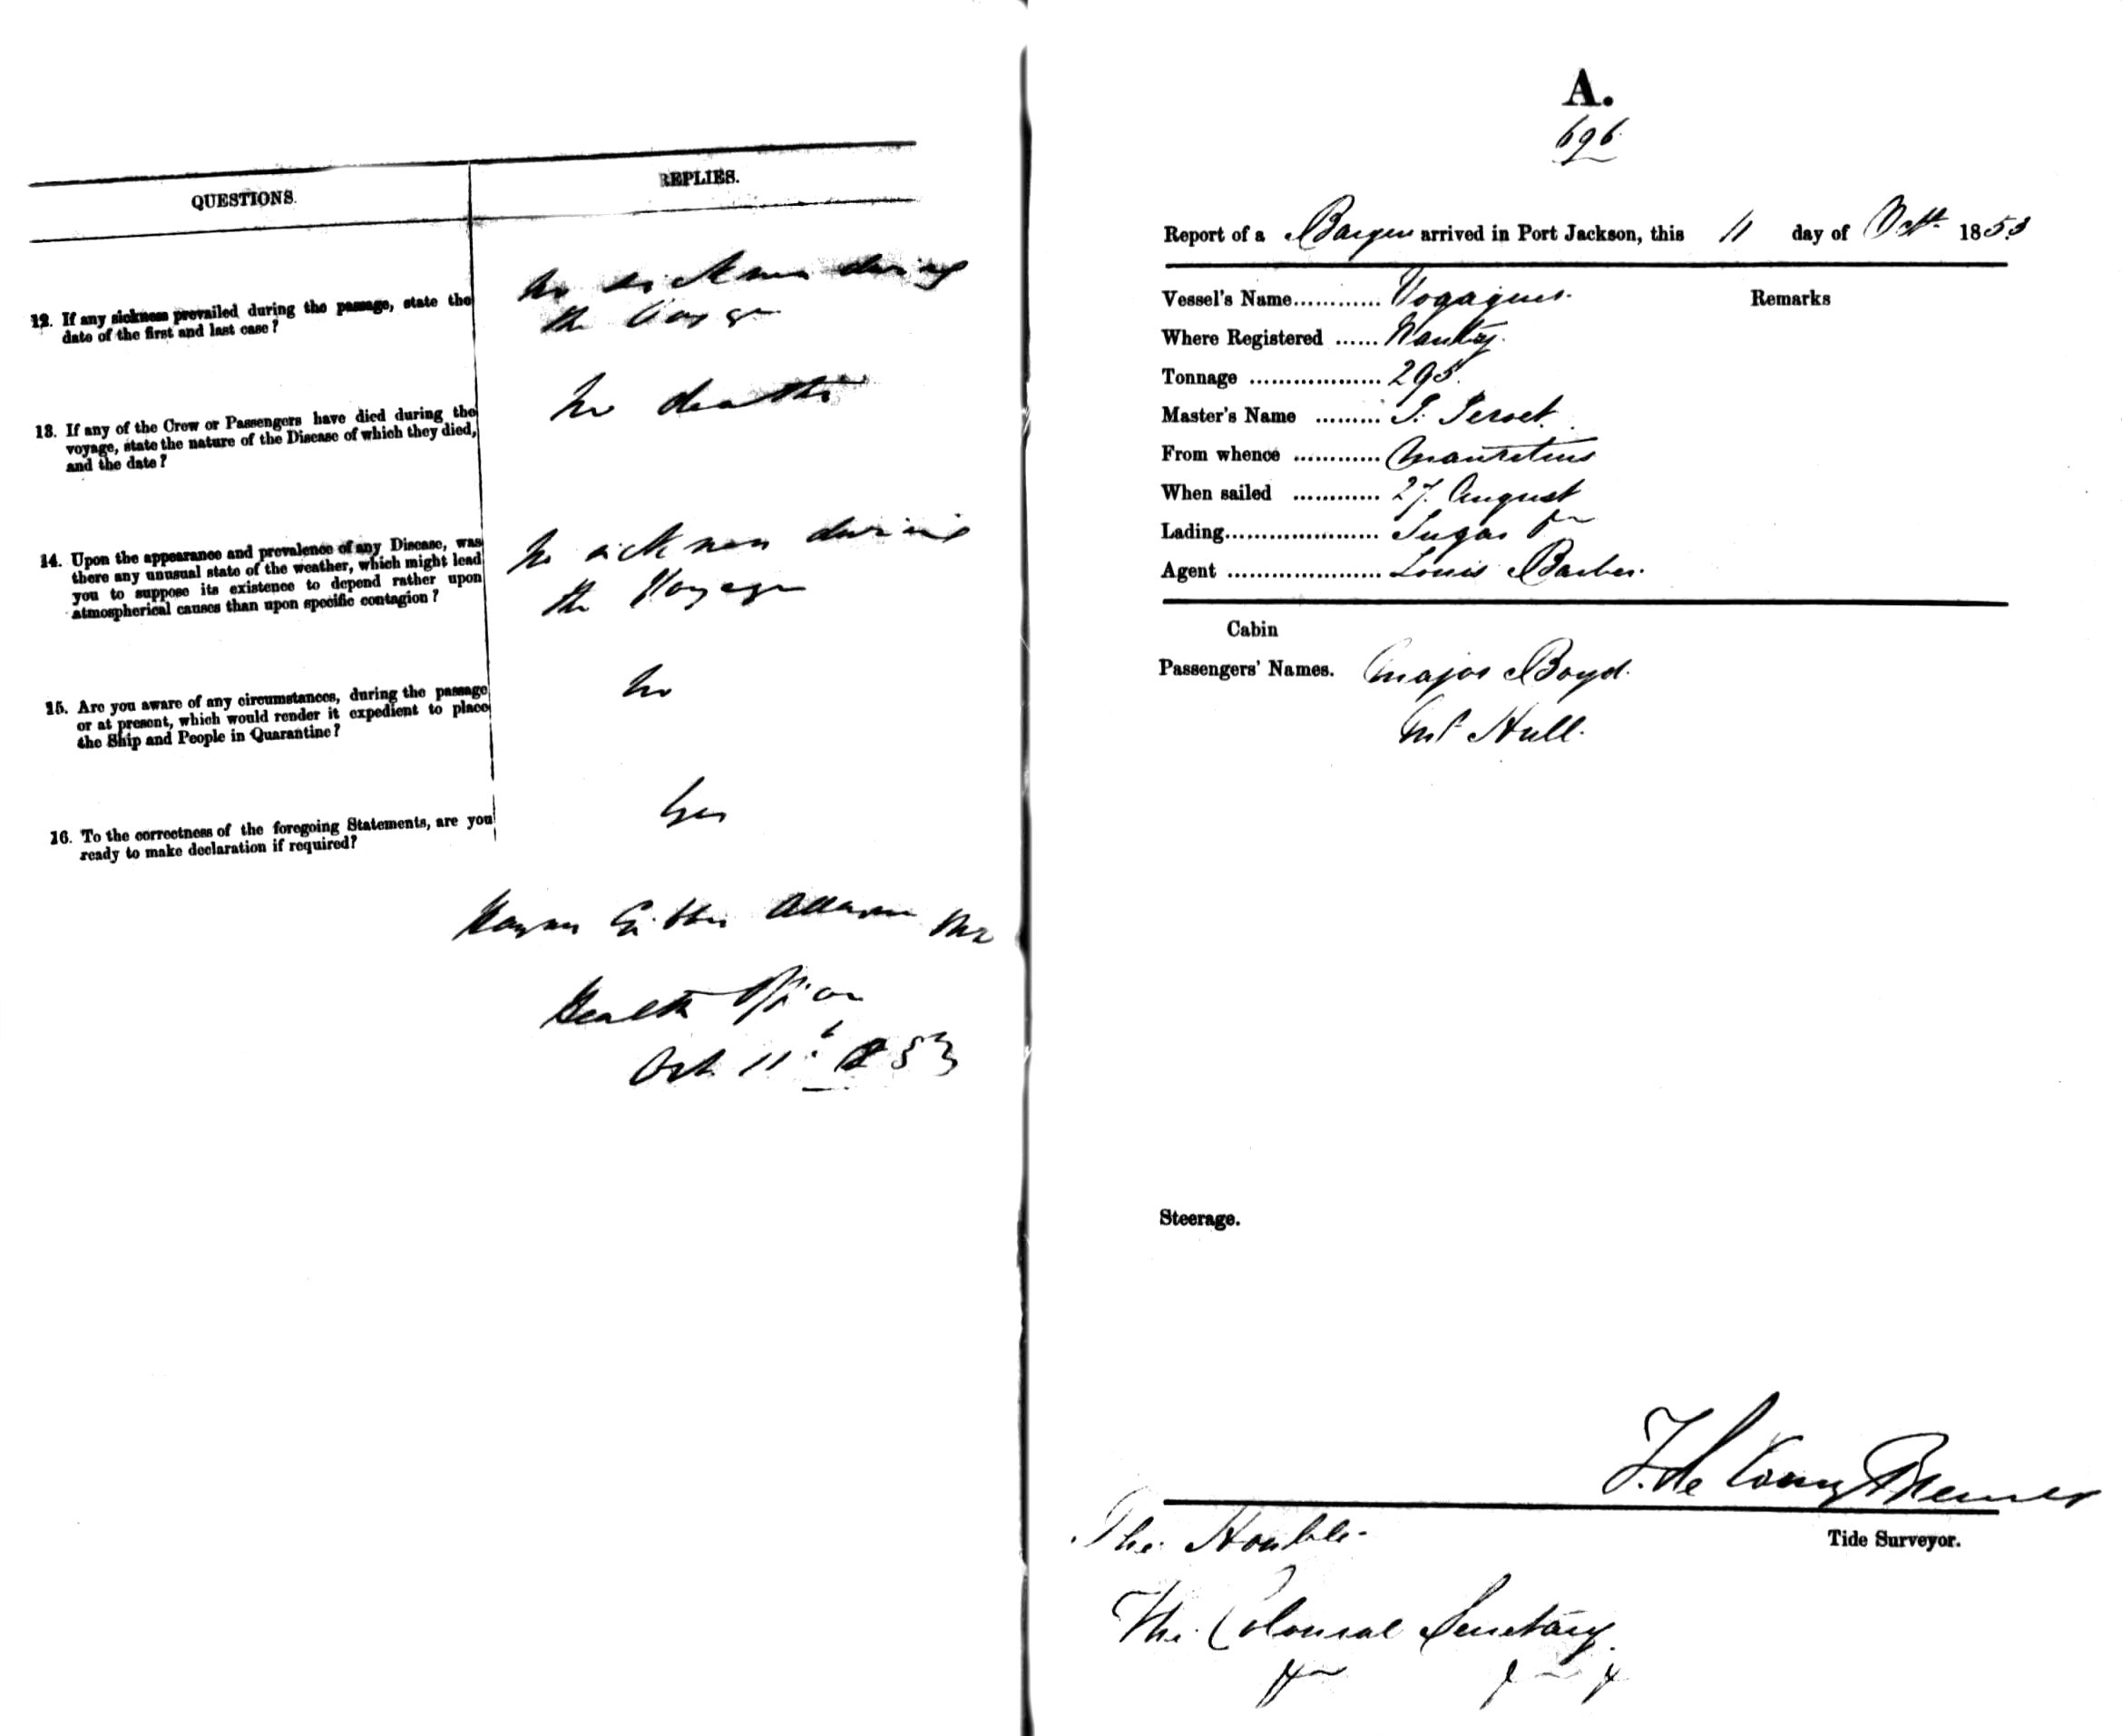 QUESTIONS.
REPLIES.
12. If any sickness prevailed during the passage, state the
date of the first and last case?
No sickness during
the Voyage
13. If any of the Crew or Passengers have died during the
voyage, state the nature of the Disease of which they died,
and the date?
No deaths
14. Upon the appearance and prevalence of any Disease, was
there any unusual state of the weather, which might lead
you to suppose its existence to depend rather upon
atmospherical causes than upon specific contagion?
No sickness during
the Voyage
15. Are you aware of any circumstances, during the passage
or at present, which would render it expedient to place
the Ship and People in Quarantine?
No
16. To the correctness of the foregoing Statements, are you
ready to make declaration if required?
Yes
Health Officer
Oct 11th 1853
A.
696
Report of a Barque arrived in Port Jackson, this 11 day of Octr 1853
Vessel's Name............ Remarks
Where Registered ......
Tonnage .................. 295.
Master's Name .........
From whence ............ Mauritius
When sailed ............ 27 August
Lading..................... Sugar
Agent ..................... Louis Barber.
Cabin
Passengers' Names. Major Boyd.
Mr Hull.
Steerage.
Tide Surveyor.
The Honble
The Colonial Secretary